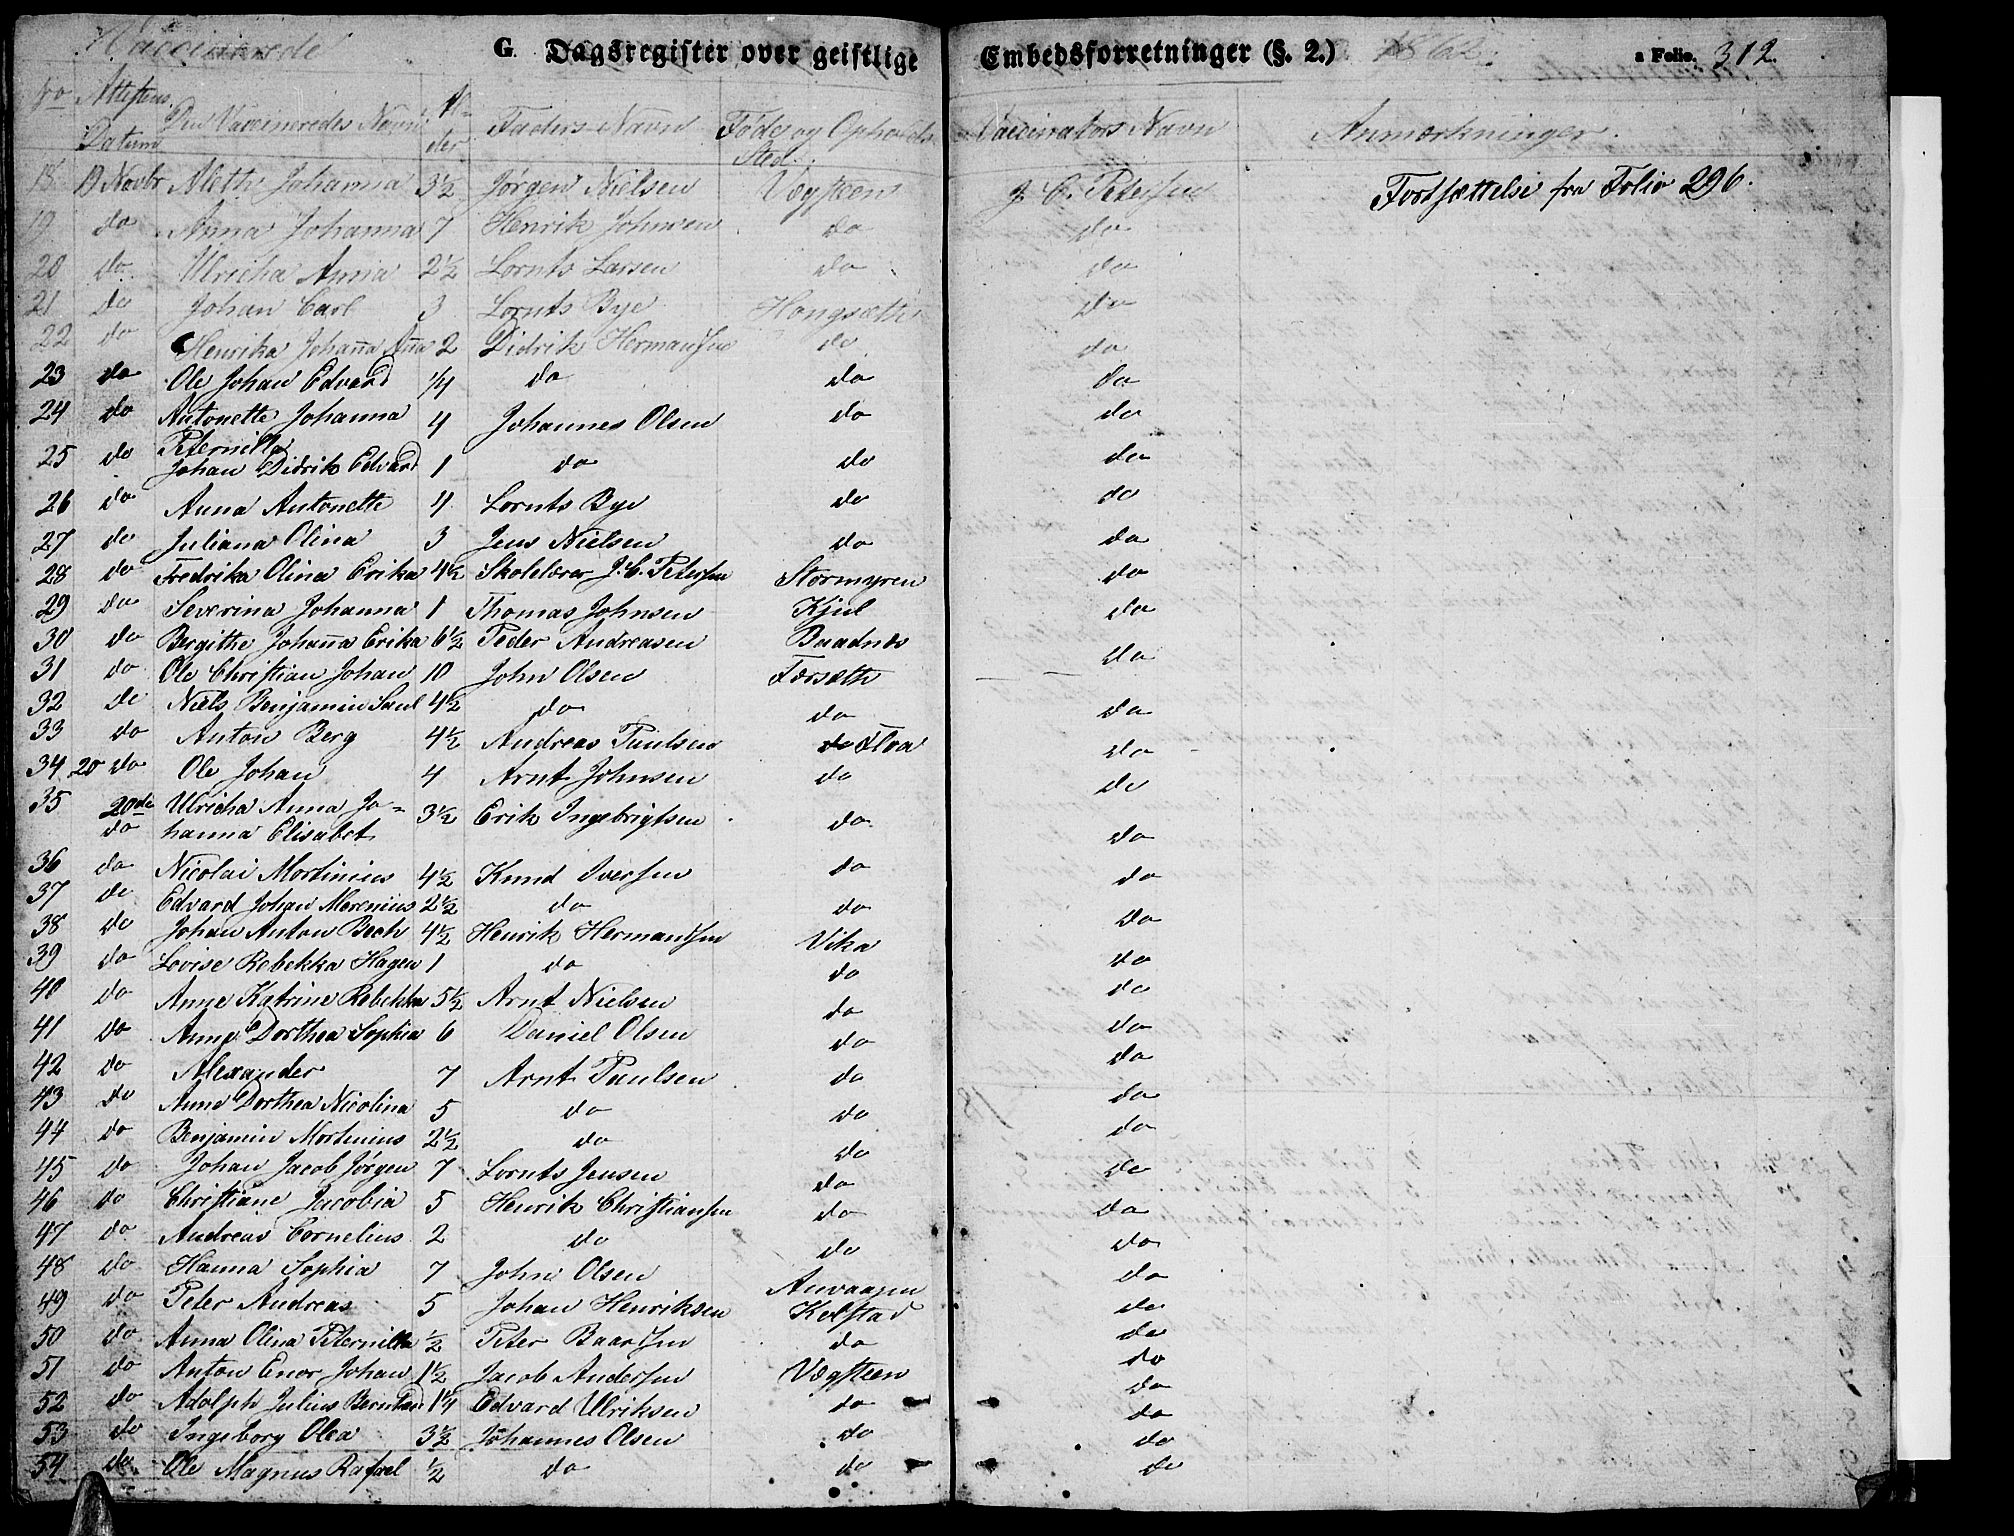 Vaccinerede G. Dagsregister over geistlige Embedsforretninger (§. 2.) 1862. a Folio. 312.
No Attestens Datum Den Vaccineredes Navn Alder Faders Navn Føde og Opholds Sted. Vaccinators Navn Anmærkninger.
18 19 Novbr Aleth Johanna 3½ Jørgen Nielsen Vægsteen J. C. Petersen Fortsættelse fra Folio 296.
19 do Anna Johanna 7 Henrik Johnsen do do
20 do Ulricha Annia 2½ Lornts Larsen do do
21 do Johan Carl 3 Lornts Bye Hongsæth do
22 do Henrika Johan̄a An̄a 2 Didrik Hermansen do do
23 do Ole Johan Edvard ¼ do do do
24 do Antonette Johanna Peternilla 4 Johannes Olsen do do
25 do Johan Didrik Edvard 1 do do do
26 do Anna Antonette 4 Lornts Bye do do
27 do Juliana Olina 3 Jens Nielsen do do
28 do Fredrika Olina Erika 4½ Skolelærer J. C. Petersen Stormyren do
29 do Severina Johanna 1 Thomas Johnsen Kjul do
30 do Bergithe Johan̄a Erika 6½ Peder Andreasen Baadnæs do
31 do Ole Christian Johan 10 John Olsen Forsæth — —
32 do Niels Benjamin Saul 4½ do do do
33 do Anton Berg 4½ Andreas Paulsen do Floa do
34 20 do Ole Johan 4 Arnt Johnsen do do
35 20de do Ulricha Anna Jo-
hanna Elisabet 3½ Erik Ingebrigtsen do do
36 do Nicolai Mortinius 4½ Knud Iversen do do
37 do Edvard Johan Marenius 2½ do do do
38 do Johan Anton Bech 4½ Henrik Hermansen Vika do
39 do Lovise Rebekka Hagen 1 do do do
40 do Anne Katrine Rebekka 5½ Arnt Nielsen do do
41 do Anne Dorthea Sophia 6 Daniel Olsen do do
42 do Alexander 7 Arnt Paulsen do do
43 do Anne Dorthea Nicolina 5 do do do
44 do Benjamin Mortinius 2½ do do do
45 do Johan Jacob Jørgen 7 Lornts Jensen do do
46 do Christiane Jacobia 5 Henrik Christiansen do do
47 do Andreas Cornelius 2 do do do
48 do Hanna Sophia 7 John Olsen Anvaagen do
49 do Peter Andreas 5 Johan Henriksen Kelstad do
50 do Anna Olina Peternilla ½ Peter Baardsen do do
51 do Anton Enor Johan 1½ Jacob Andersen Vægsteen do
52 do Adolph Julius Berntin 1¼ Edvard Ulriksen do do
53 do Ingeborg Olea 3½ Johannes Olsen do do
54 do Ole Magnus Rafael ½ do do do